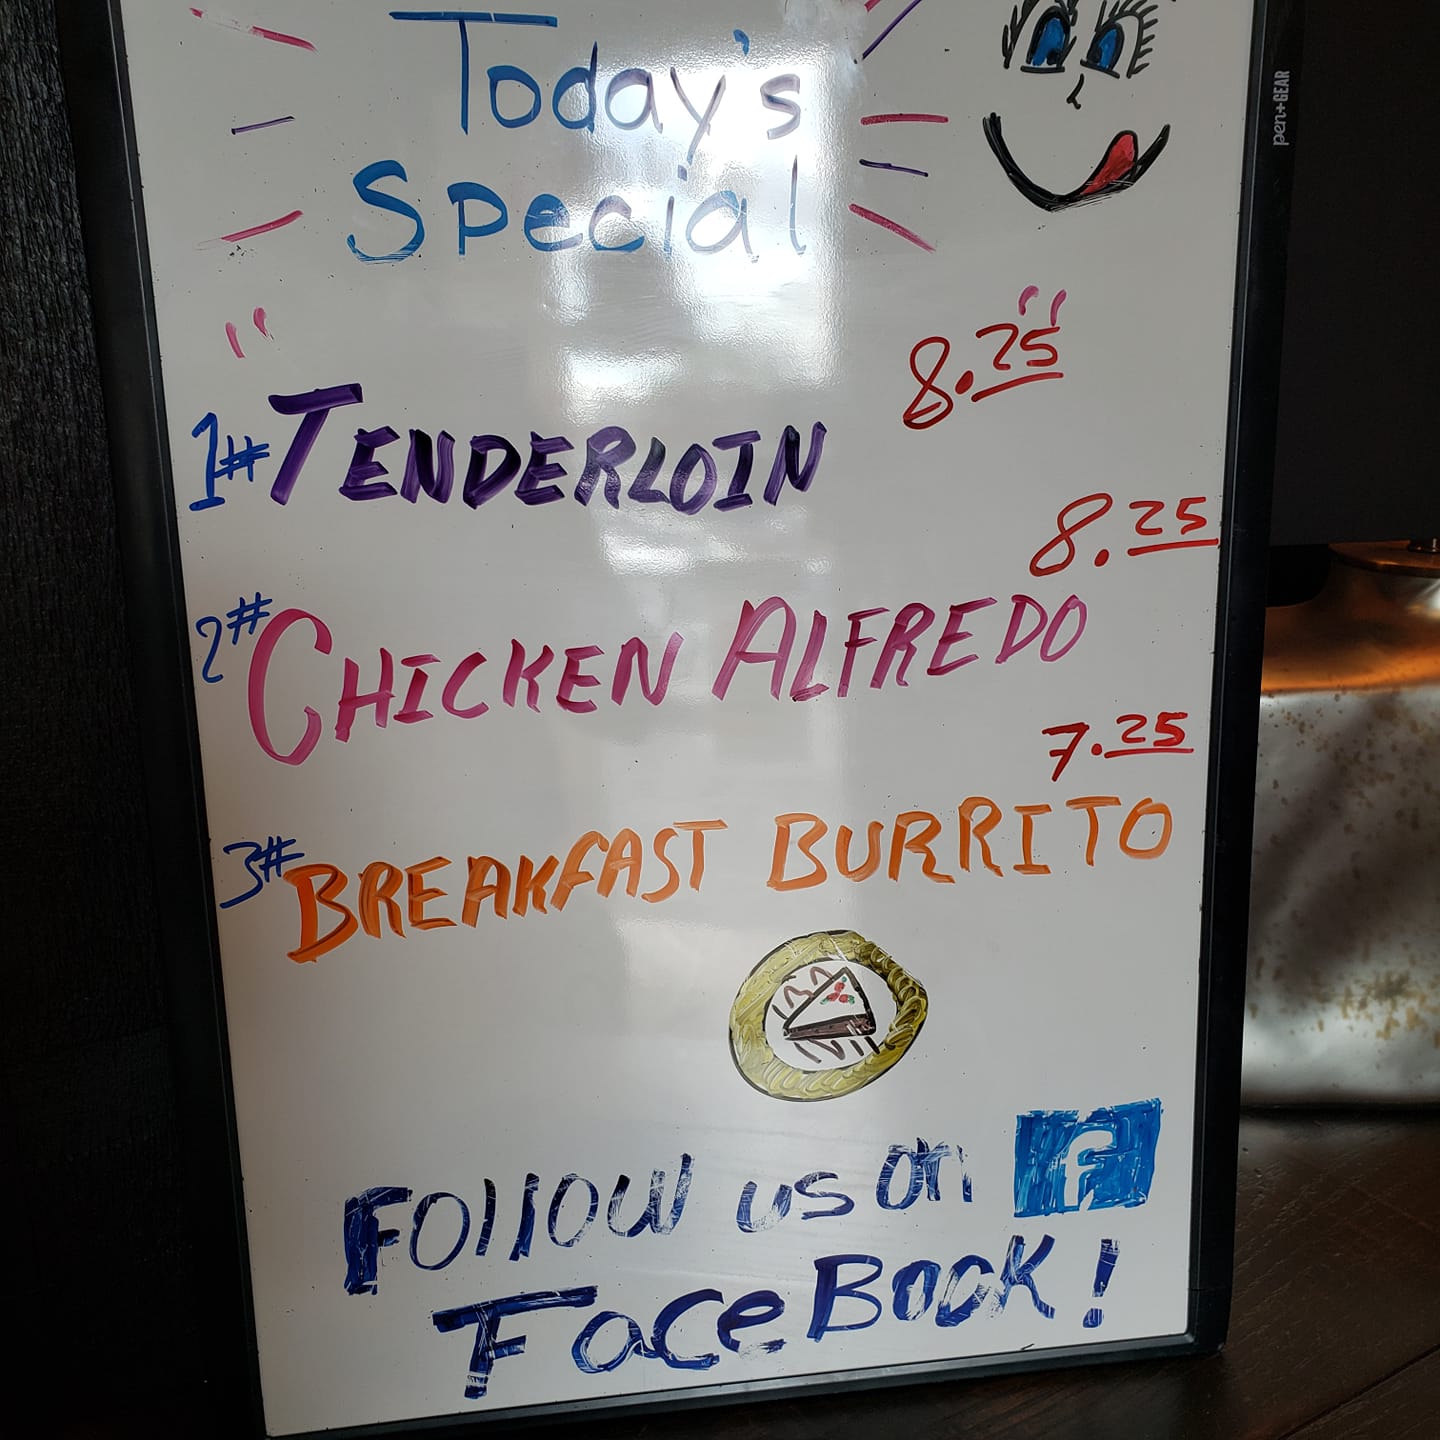 Today's
Special
" "
1# TENDERLOIN 8.25
2# CHICKEN ALFREDO 8.25
3# BREAKFAST BURRITO 7.25
Follow us on f
FaceBook!
pen+GEAR